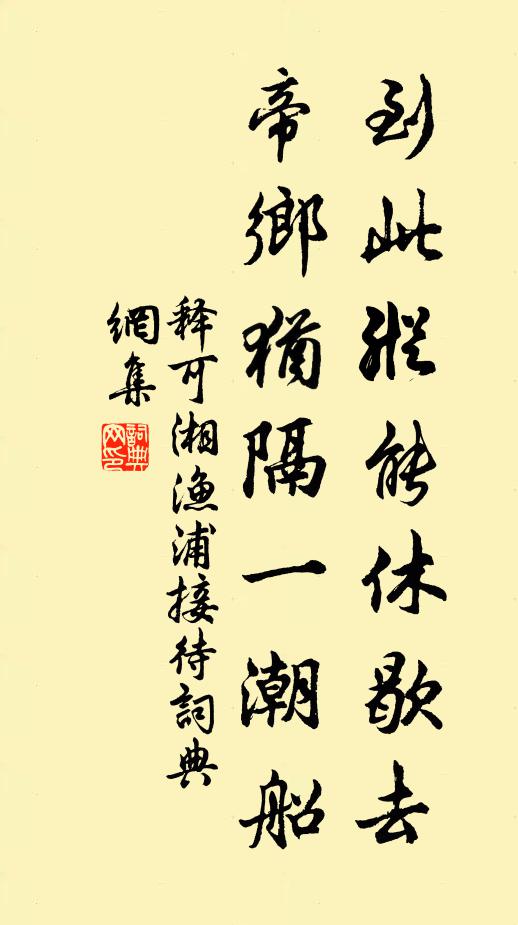 到此縱能休歇去
帝鄉猶隔一潮船
释可湘漁浦接待詞典
網集
詞典
网印